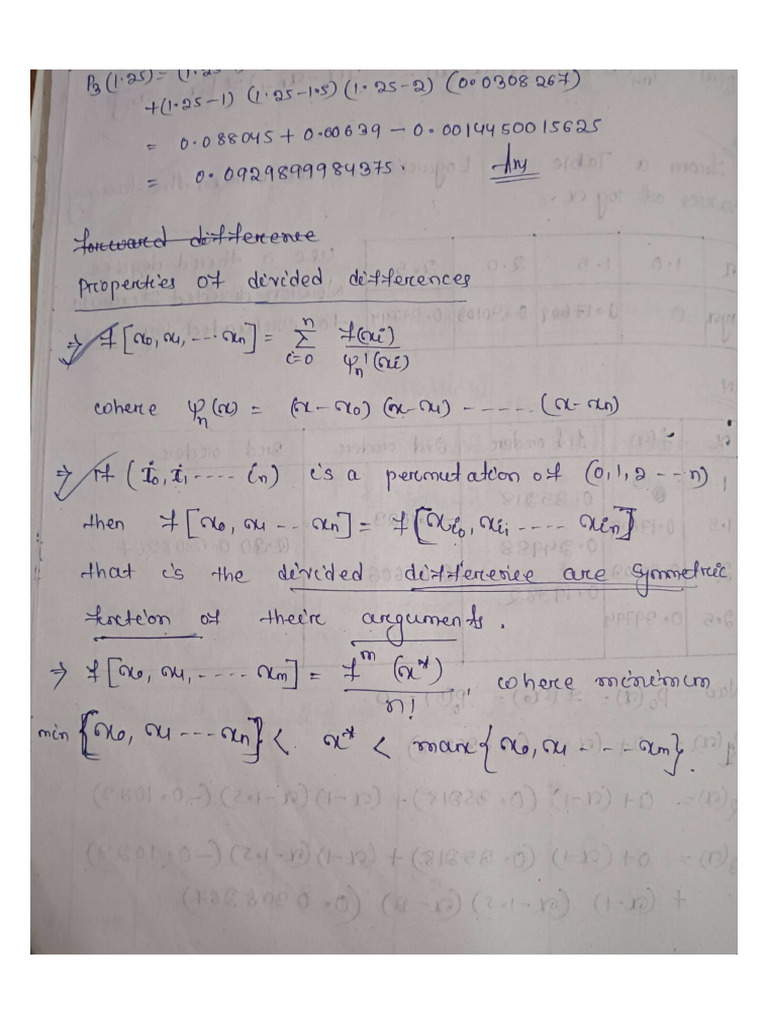 P₃(1.25) = (1.25
+(1.25-1) (1.25-1.5) (1.25-2) (0.0308267)
= 0.088045 + 0.00639 - 0.0014450015625
= 0.0929899984375. Ans
forward difference
Properties of divided differences
⇒ f[x₀, x₁, ---- xₙ] = Σⁿᵢ₌₀ f(xᵢ) / φₙ'(xᵢ)
where φₙ(x) = (x-x₀) (x-x₁) ------- (x-xₙ)
⇒ If (i₀, i₁ ---- iₙ) is a permutation of (0,1,2 --- n)
then f[x₀, x₁ -- xₙ] = f[xᵢ₀, xᵢ₁ ---- xᵢₙ]
that is the divided differeniee are symmetric
function of their arguments.
⇒ f[x₀, x₁, ---- xₙ] = fⁿ(x*) / n! , where minimum
min {x₀, x₁ --- xₙ} < x* < max{x₀, x₁ - - - xₙ}.